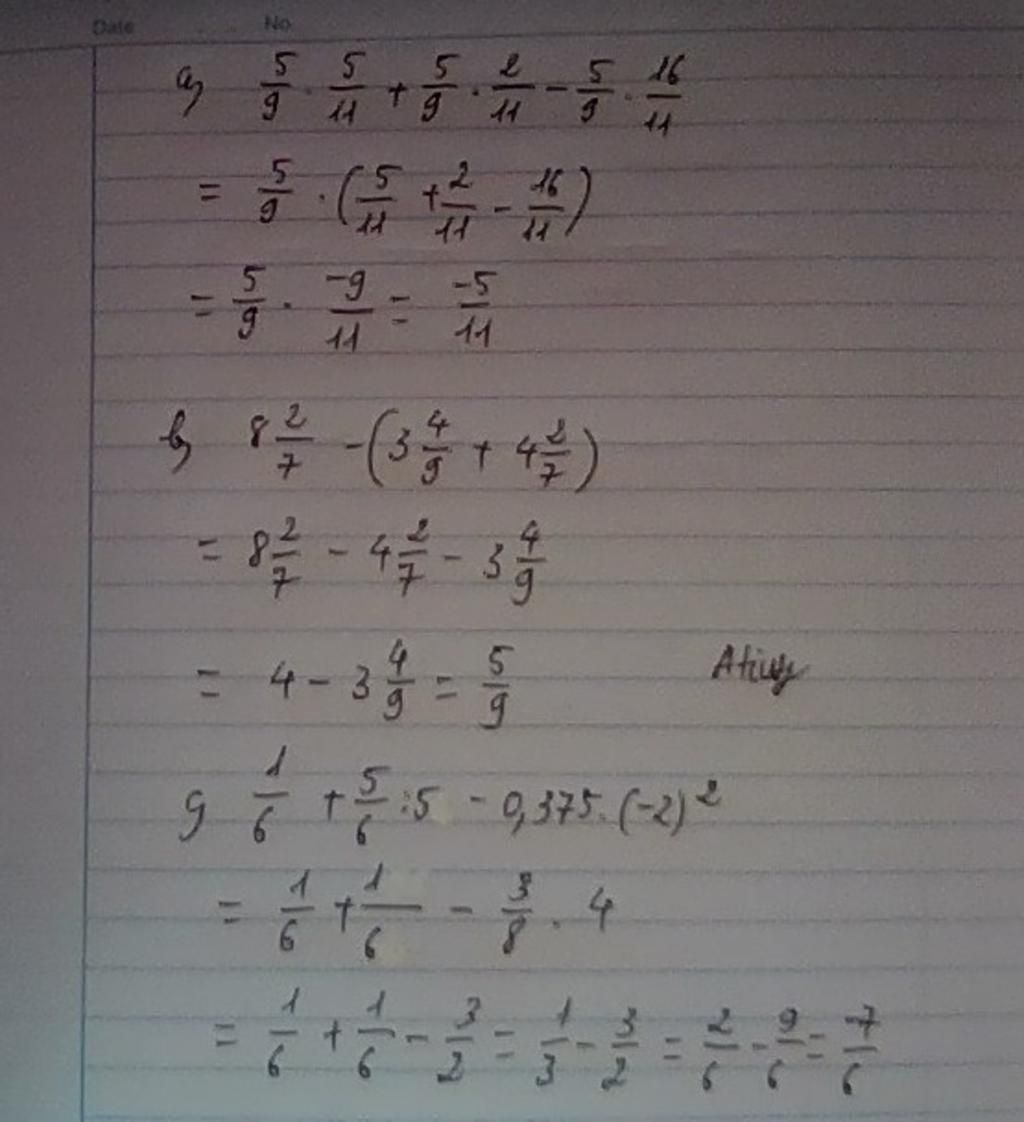 Date No
a) 5/9 . 5/11 + 5/9 . 2/11 - 5/9 . 16/11
= 5/9 . (5/11 + 2/11 - 16/11)
= 5/9 . -9/11 = -5/11
b) 8 2/7 - (3 4/9 + 4 2/7)
= 8 2/7 - 4 2/7 - 3 4/9
= 4 - 3 4/9 = 5/9
c) 1/6 + 5/6 : 5 - 0,375 . (-2)²
= 1/6 + 1/6 - 3/8 . 4
= 1/6 + 1/6 - 3/2 = 1/3 - 3/2 = 2/6 - 9/6 = -7/6